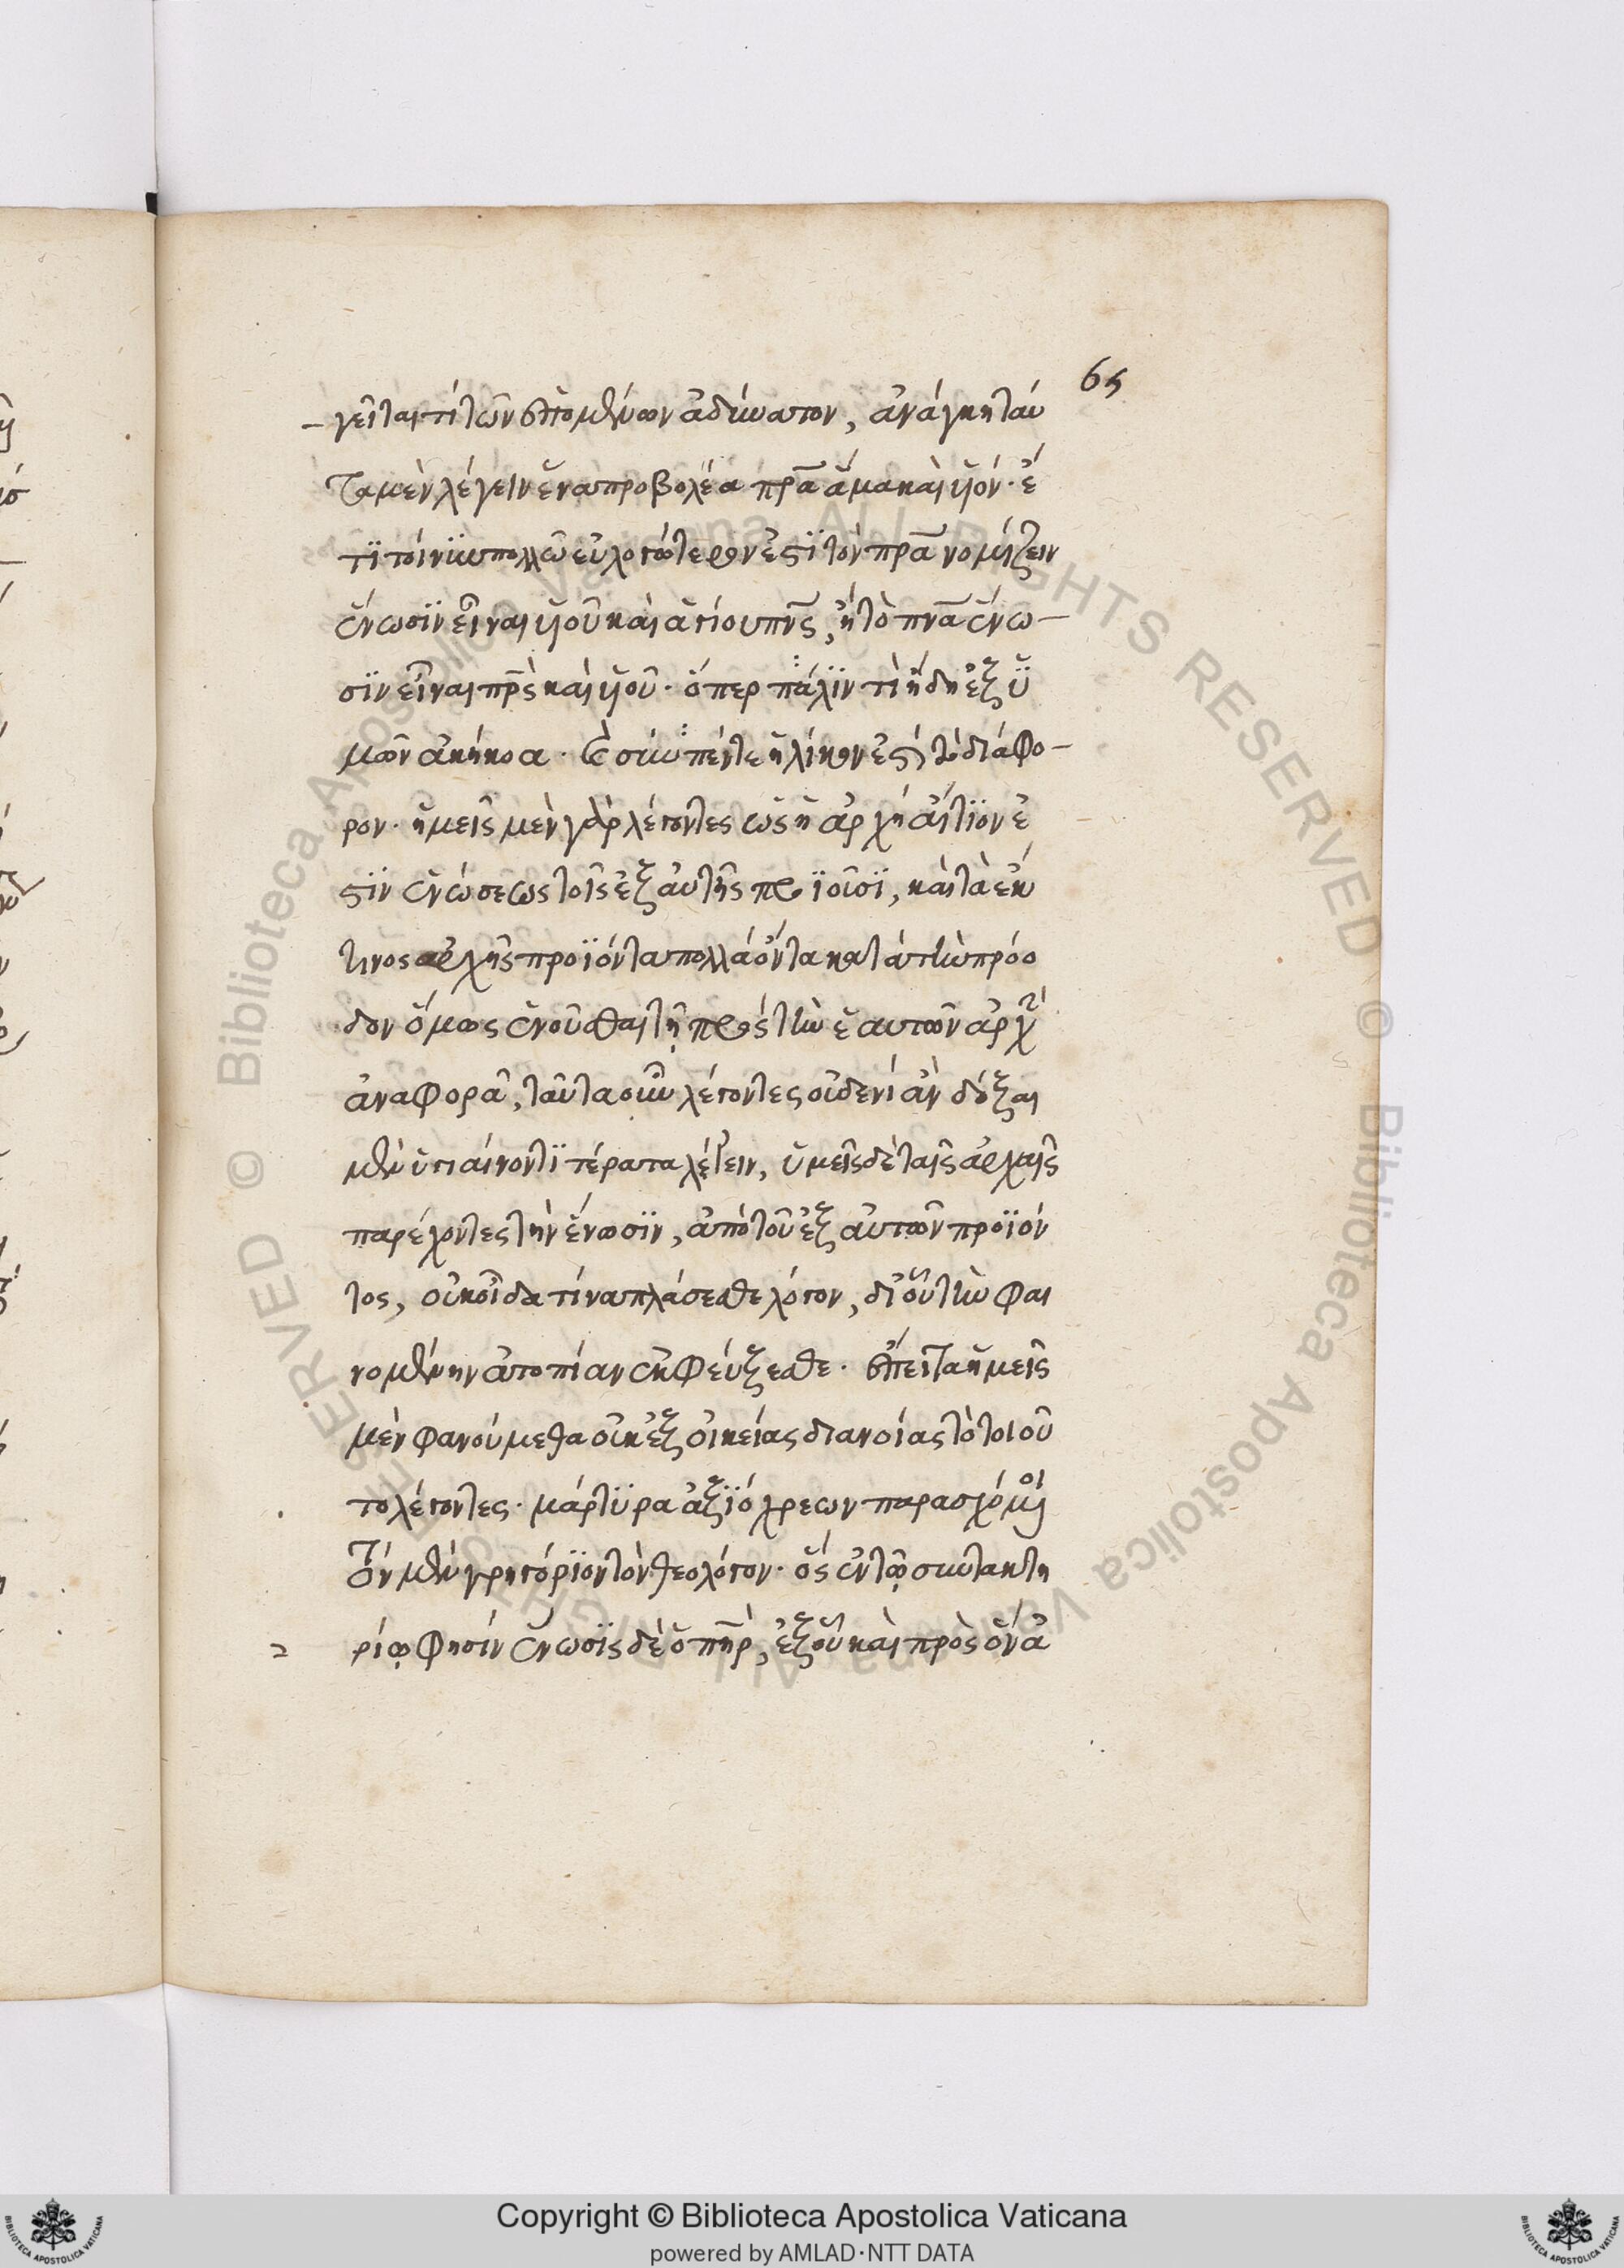 65
γεῖται τί τῶν ἑπομένων ἀδύνατον, ἀνάγκη ταύ
τα μὲν λέγειν ἕνα προβολέα πρ̅α ἅμα καὶ υἱόν. ἔ
τϊ τοίνϋν πολλῶ εὐλογώτερον ἐστϊ τὸν πρ̅α νομίζειν
ἕνωσϊν εἶναι υἱοῦ καὶ ἁγίου πν̅ς, ἢ τὸ πν̅α ἕνω-
σϊν εἶναι πρ̅ς καὶ υἱοῦ. ὅπερ πάλϊν τὶ ἤδη ἐξ ὑ
μῶν ἀκήκοα. καὶ σκόπει γε ἡλίκον ἐστὶ τὸ διάφο-
ρον. ἡμεῖς μὲν γὰρ λέγοντες ὡς ἡ ἀρχὴ αἴτϊον ἐ
στϊν ἑνώσεως τοῖς ἐξ αὐτῆς προϊοῦσϊ, καὶ τὰ ἔκ
τινος ἀρχῆς προϊόντα πολλὰ ὄντα κατὰ τὴν πρόο
δον ὅμως ἑνοῦσθαι τῇ πρὸς τὴν ἑαυτῶν ἀρχὴν
ἀναφορᾶ, ταῦτα οὖν λέγοντες οὐδενὶ ἂν δόξαι
μεν ὑγιαίνοντϊ τέρατα λέγειν, ὑμεῖς δὲ ταῖς ἀρχαῖς
παρέχοντες τὴν ἕνωσϊν, ἀπὸ τοῦ ἐξ αὐτῶν προϊόν
τος, οὐκ οἶδα τίνα πλάσεσθε λόγον, δι οὗ τὴν φαι
νομένην ἀτοπίαν ἐκφεύξεσθε. ἔπειτα ἡμεῖς
μὲν φανούμεθα οὐκ ἐξ οἰκείας διανοίας τὸ τοιοῦ
το λέγοντες. μάρτϋρα ἀξϊόχρεων παρασχόμενοι
τὸν μὲν γρηγόρϊον τὸν θεολόγον. ὃς ἐν τῷ συντακτη
ρίῳ φησίν ἕνωσϊς δὲ ὁ πη̅ρ, ἐξ οὗ καὶ πρὸς ὃν ἀ
Copyright © Biblioteca Apostolica Vaticana
powered by AMLAD·NTT DATA